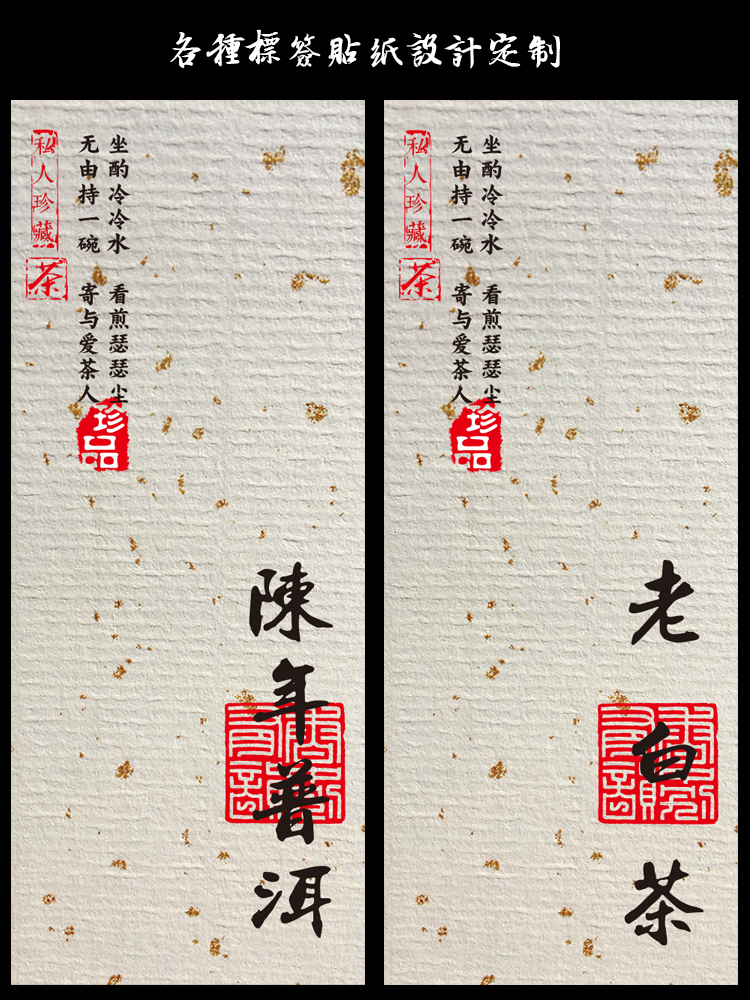 各種標簽貼纸設計定制
私人珍藏
茶
坐酌冷冷水 看煎瑟瑟尘
无由持一碗 寄与爱茶人
珍品
陳年普洱
私人珍藏
茶
坐酌冷冷水 看煎瑟瑟尘
无由持一碗 寄与爱茶人
珍品
老白茶